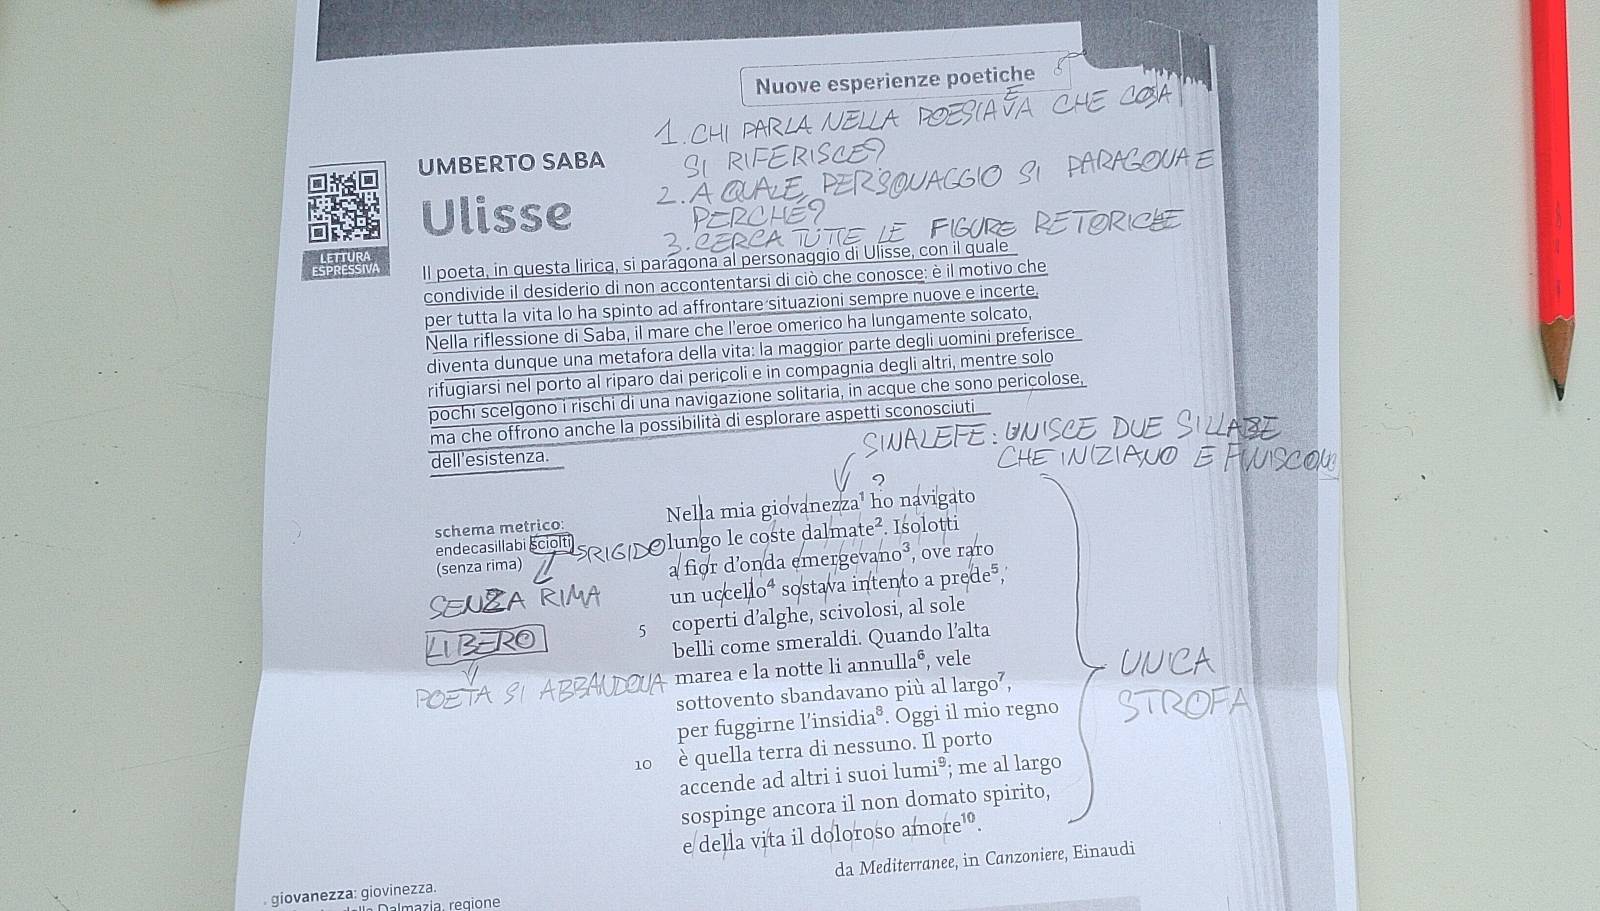 Nuove esperienze poetiche
1. CHI PARLA NELLA POESIA E A CHE COSA
SI RIFERISCE?
2. A QUALE PERSONAGGIO SI PARAGONA E
PERCHÉ?
3. CERCA TUTTE LE FIGURE RETORICHE
UMBERTO SABA
Ulisse
LETTURA
ESPRESSIVA
Il poeta, in questa lirica, si paragona al personaggio di Ulisse, con il quale
condivide il desiderio di non accontentarsi di ciò che conosce: è il motivo che
per tutta la vita lo ha spinto ad affrontare situazioni sempre nuove e incerte.
Nella riflessione di Saba, il mare che l'eroe omerico ha lungamente solcato,
diventa dunque una metafora della vita: la maggior parte degli uomini preferisce
rifugiarsi nel porto al riparo dai pericoli e in compagnia degli altri, mentre solo
pochi scelgono i rischi di una navigazione solitaria, in acque che sono pericolose,
ma che offrono anche la possibilità di esplorare aspetti sconosciuti
dell'esistenza.
SINALEFE: UNISCE DUE SILLABE
CHE INIZIANO E FINISCONO
?
schema metrico:
endecasillabi sciolti
(senza rima)
SENZA RIMA
LIBERO
POETA SI ABBANDONA
Nella mia giovanezza¹ ho navigato
lungo le coste dalmate². Isolotti
a fior d'onda emergevano³, ove raro
un uccello⁴ sostava intento a prede⁵,
5 coperti d'alghe, scivolosi, al sole
belli come smeraldi. Quando l'alta
marea e la notte li annulla⁶, vele
sottovento sbandavano più al largo⁷,
per fuggirne l'insidia⁸. Oggi il mio regno
10 è quella terra di nessuno. Il porto
accende ad altri i suoi lumi⁹; me al largo
sospinge ancora il non domato spirito,
e della vita il doloroso amore¹⁰.
UNICA
STROFA
da Mediterranee, in Canzoniere, Einaudi
giovanezza: giovinezza.
Dalmazia, regione